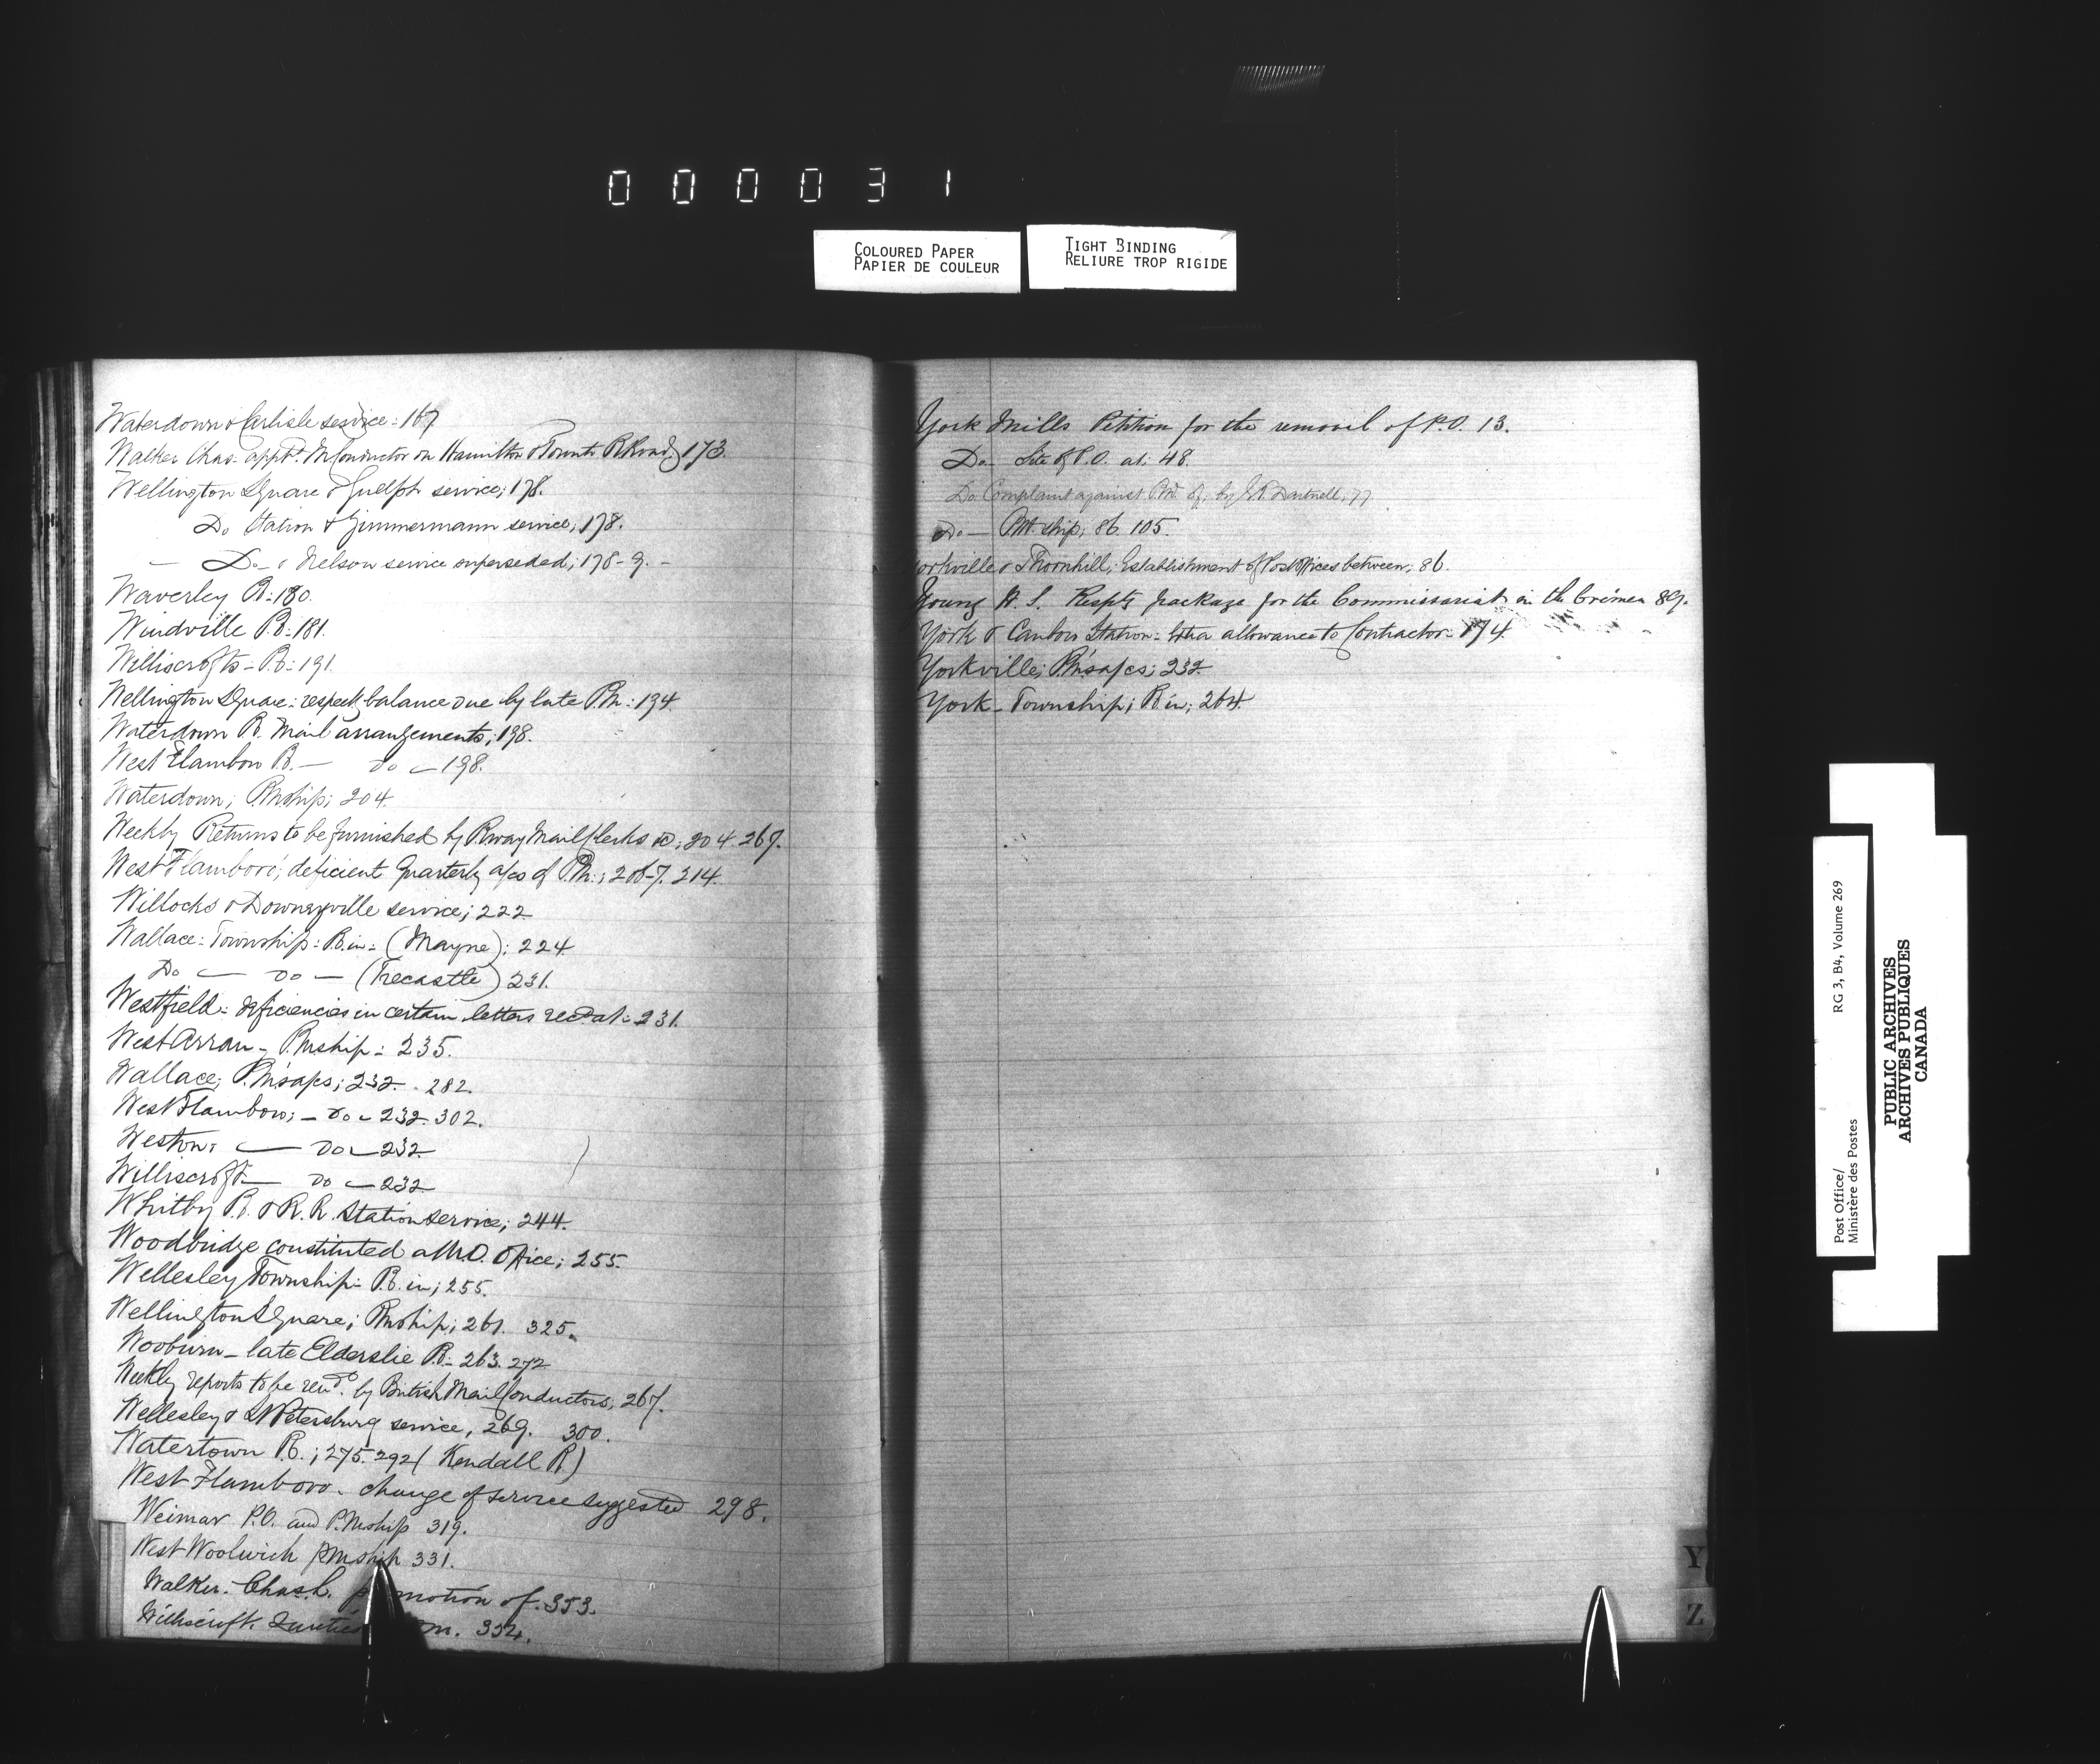 000031
COLOURED PAPER
PAPIER DE COULEUR
TIGHT BINDING
RELIURE TROP RIGIDE
Waterdown & Carlisle service: 167
Walker Chas. appt. M Conductor on Hamilton & Toronto RRoad; 173.
Wellington Square & Guelph service; 178.
Do Station & Zimmermann service; 178.
— Do — & Nelson service superseded; 178-9. -
Waverley P.O: 180.
Windville P.O: 181.
Williscrofts - P.O: 191.
Wellington Square: respectg balance due by late P.M: 194.
Waterdown P.O. Mail arrangements; 198.
West Flamboro P.O. — do — 198.
Waterdown; P.Mship; 204.
Weekly Returns to be furnished by Rway Mail Clerks &c; 204. 267.
West Flamboro'; deficient Quarterly a/cs of P.M.; 206-7. 214.
Willocks & Downeyville service; 222
Wallace: Township: P.O. in: (Mayne): 224
Do — do — (Trecastle) 231.
Westfield: deficiencies in certain letters recd at: 231.
West Arran - P.Mship: 235.
Wallace; P.M's a/cs; 232. . 282.
West Flamboro; - do - 232. 302.
Weston: — do — 232.
Williscroft — do — 232
Whitby P.O. & R.R. Station service; 244.
Woodbridge constituted a M.O. Office; 255.
Wellesley Township: P.O. in; 255.
Wellington Square; P.Mship; 261. 325.
Wooburn - late Elderslie P.O: 263. 272
Weekly reports to be rend. by British Mail Conductors; 267.
Wellesley & St Petersburg service, 269. 300.
Watertown P.O.; 275. 292 (Kendall P.O.)
West Flamboro. change of service suggested 298.
Weimar P.O. and P.Mship 319.
West Woolwich PMship 331.
Walker. Chas. L. promotion of. 353.
Williscroft. 354.
York Mills Petition for the removal of P.O. 13.
Do — Site of P.O. at; 48.
Do Complaint against P.M. of, by E.R. Dartnell; 77.
Do — PM.ship; 86. 105.
orkville & Thornhill; Establishment of Post Offices between; 86.
Young W. S. Respg package for the Commissariat in the Crimea 89.
York & Canboro Station: Extra allowance to Contractor: 174.
Yorkville; P.M's a/cs; 232.
York - Township; P.O. in; 264.
Y
Z
Post Office/
Ministère des Postes
RG 3, B4, Volume 269
PUBLIC ARCHIVES
ARCHIVES PUBLIQUES
CANADA